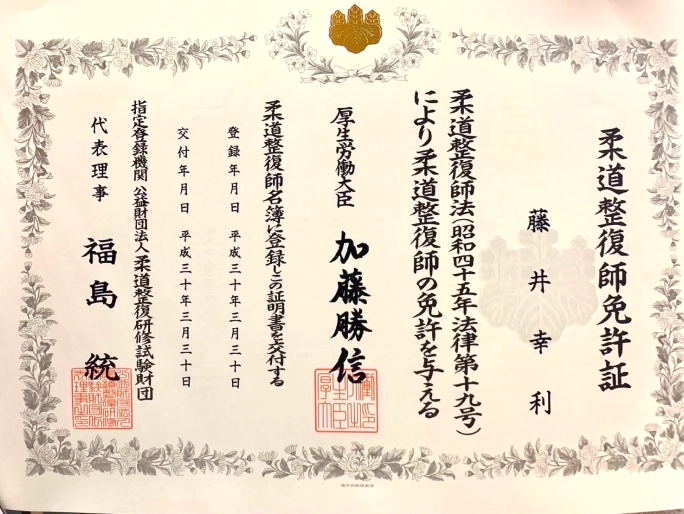 柔道整復師免許証
藤井幸利
柔道整復師法（昭和四十五年法律第十九号）
により柔道整復師の免許を与える
厚生労働大臣 加藤勝信
柔道整復師名簿に登録しこの証明書を交付する
登録年月日 平成三十年三月三十日
交付年月日 平成三十年三月三十日
指定登録機関 公益財団法人 柔道整復研修試験財団
代表理事 福島統